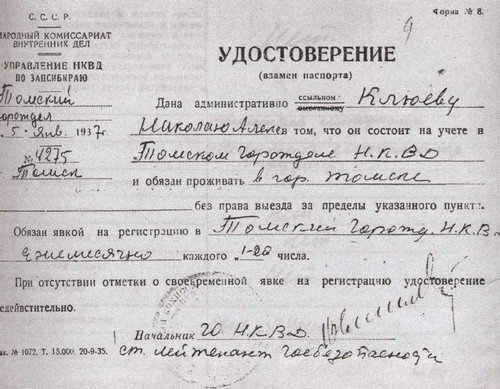 С. С. С. Р.
Форма № 8.
НАРОДНЫЙ КОМИССАРИАТ
ВНУТРЕННИХ ДЕЛ
УПРАВЛЕНИЕ НКВД
ПО ЗАПСИБКРАЮ
9
УДОСТОВЕРЕНИЕ
(взамен паспорта)
Томский
Горотдел
5 янв. 1937 г.
№ 4275
Томск
Дана административно ссыльному Клюеву
высланному
Николаю Алексе в том, что он состоит на учете в
Томском Горотделе Н.К.В.Д
и обязан проживать в гор. Томске
без права выезда за пределы указанного пункта.
Обязан явкой на регистрацию в Томский Горотд. Н.К.В.Д
ежемесячно каждого 1-20 числа.
При отсутствии отметки о своевременной явке на регистрацию удостоверение
недейвстительно.
Начальник ГО Н.К.В.Д.
ст. лейтенант госбезопасности
Зак. № 1072. Т. 15.000. 20-9-35.